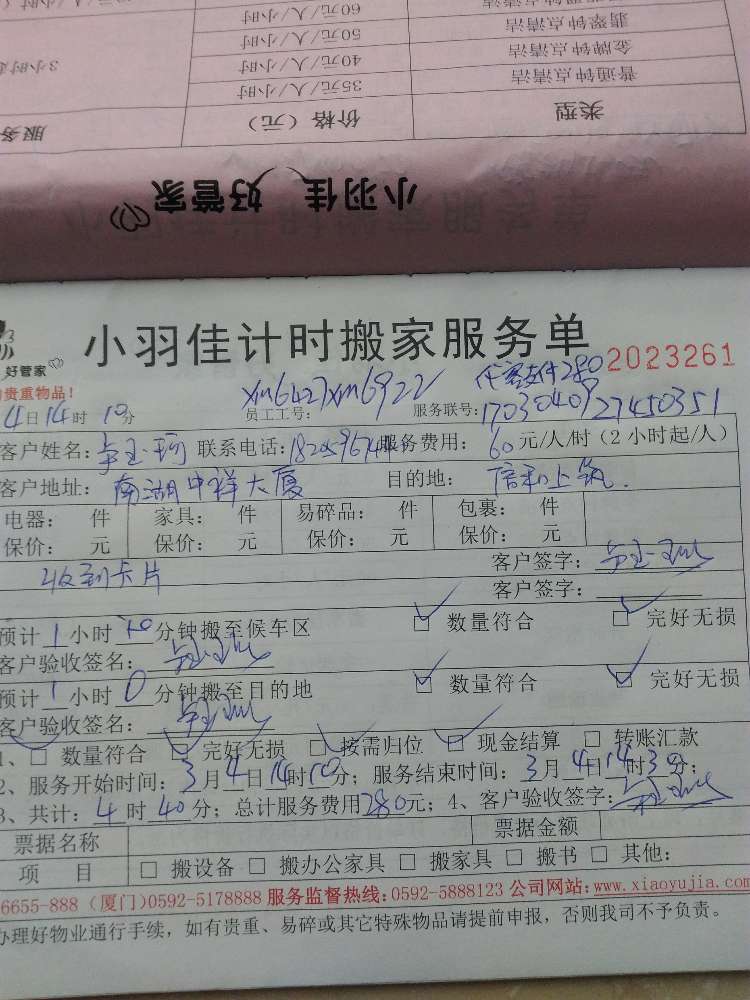 60元/人/时
50元/人/小时
翡翠钟点清洁
40元/人/小时
金牌钟点清洁
3小时
35元/人/小时
普通钟点清洁
服务
价格（元）
类型
小羽佳 好管家
小羽佳计时搬家服务单
好管家
2023261
贵重物品！
4日14时10分
员工工号：
服务联号：1703040927450351
客户姓名：
联系电话：
服务费用：60元/人/时（2小时起/人）
客户地址：南湖中祥大厦
目的地：信和上筑.
电器： 件 家具： 件 易碎品： 件 包裹： 件
保价： 元 保价： 元 保价： 元 保价： 元
客户签字：
收到卡片
客户签字：
预计1小时10分钟搬至候车区 □ 数量符合 □ 完好无损
客户验收签名：
预计1小时0分钟搬至目的地 □ 数量符合 □ 完好无损
客户验收签名：
1、□ 数量符合 □ 完好无损 □ 按需归位 □ 现金结算 □ 转账汇款
2、服务开始时间：3月4日14时10分；服务结束时间：3月4日14时30分；
3、共计：4时40分；总计服务费用280元；4、客户验收签字：
票据名称 票据金额
项 目 □ 搬设备 □ 搬办公家具 □ 搬家具 □ 搬书 □ 其他：
6655-888（厦门）0592-5178888 服务监督热线：0592-5888123 公司网站：www.xiaoyujia.com
办理好物业通行手续，如有贵重、易碎或其它特殊物品请提前申报，否则我司不予负责。